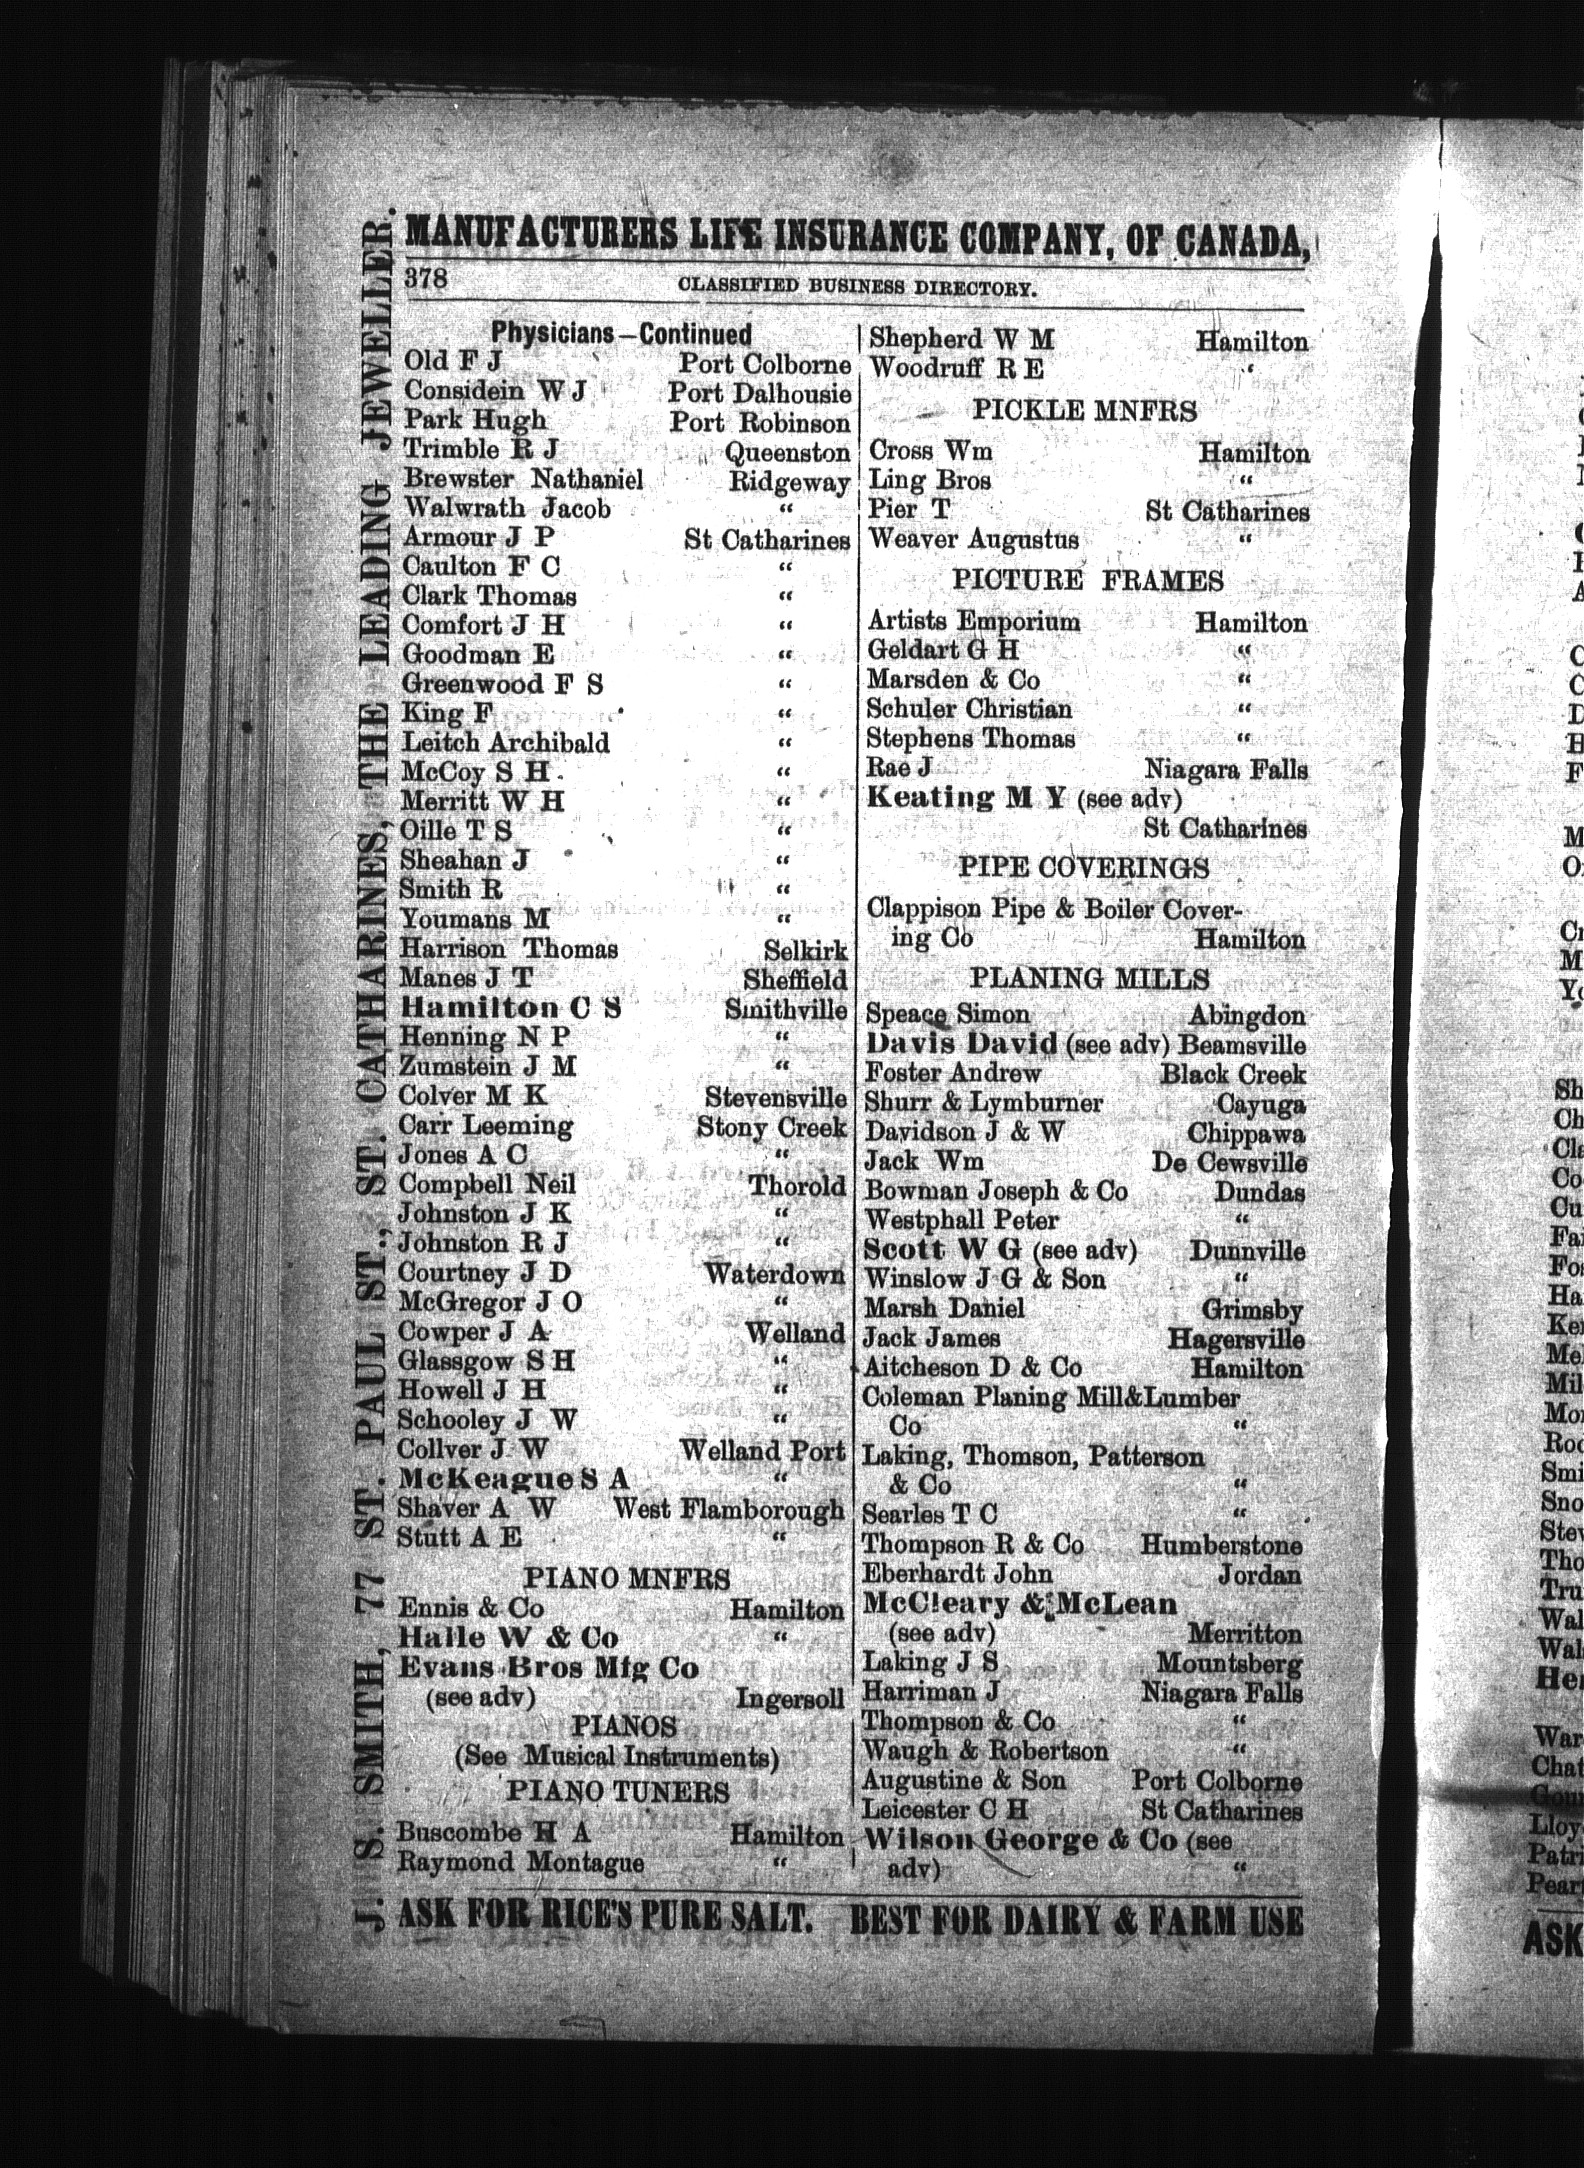 MANUFACTURERS LIFE INSURANCE COMPANY, OF CANADA,
378 CLASSIFIED BUSINESS DIRECTORY.
J. S. SMITH, 77 ST. PAUL ST., ST. CATHARINES, THE LEADING JEWELLER.
Physicians—Continued
Old F J Port Colborne
Considein W J Port Dalhousie
Park Hugh Port Robinson
Trimble R J Queenston
Brewster Nathaniel Ridgeway
Walwrath Jacob “
Armour J P St Catharines
Caulton F C “
Clark Thomas “
Comfort J H “
Goodman E “
Greenwood F S “
King F “
Leitch Archibald “
McCoy S H “
Merritt W H “
Oille T S “
Sheahan J “
Smith R “
Youmans M “
Harrison Thomas Selkirk
Manes J T Sheffield
Hamilton C S Smithville
Henning N P “
Zumstein J M “
Colver M K Stevensville
Carr Leeming Stony Creek
Jones A C “
Compbell Neil Thorold
Johnston J K “
Johnston R J “
Courtney J D Waterdown
McGregor J O “
Cowper J A Welland
Glassgow S H “
Howell J H “
Schooley J W “
Collver J W Welland Port
McKeague S A “
Shaver A W West Flamborough
Stutt A E “
PIANO MNFRS
Ennis & Co Hamilton
Halle W & Co “
Evans Bros Mfg Co
(see adv) Ingersoll
PIANOS
(See Musical Instruments)
PIANO TUNERS
Buscombe H A Hamilton
Raymond Montague “
Shepherd W M Hamilton
Woodruff R E “
PICKLE MNFRS
Cross Wm Hamilton
Ling Bros “
Pier T St Catharines
Weaver Augustus “
PICTURE FRAMES
Artists Emporium Hamilton
Geldart G H “
Marsden & Co “
Schuler Christian “
Stephens Thomas “
Rae J Niagara Falls
Keating M Y (see adv)
St Catharines
PIPE COVERINGS
Clappison Pipe & Boiler Cover-
ing Co Hamilton
PLANING MILLS
Speace Simon Abingdon
Davis David (see adv) Beamsville
Foster Andrew Black Creek
Shurr & Lymburner Cayuga
Davidson J & W Chippawa
Jack Wm De Cewsville
Bowman Joseph & Co Dundas
Westphall Peter “
Scott W G (see adv) Dunnville
Winslow J G & Son “
Marsh Daniel Grimsby
Jack James Hagersville
Aitcheson D & Co Hamilton
Coleman Planing Mill&Lumber
Co “
Laking, Thomson, Patterson
& Co “
Searles T C “
Thompson R & Co Humberstone
Eberhardt John Jordan
McCleary & McLean
(see adv) Merritton
Laking J S Mountsberg
Harriman J Niagara Falls
Thompson & Co “
Waugh & Robertson “
Augustine & Son Port Colborne
Leicester C H St Catharines
Wilson George & Co (see
adv) “
ASK FOR RICE'S PURE SALT. BEST FOR DAIRY & FARM USE